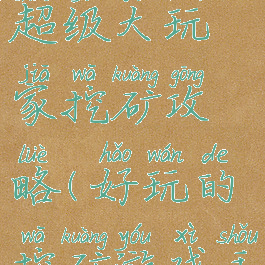 超级大玩
jiā wā kuàng gōng
家挖矿攻
lüè hǎo wán de
略(好玩的
wā kuàng yóu xì shǒu
挖矿游戏手